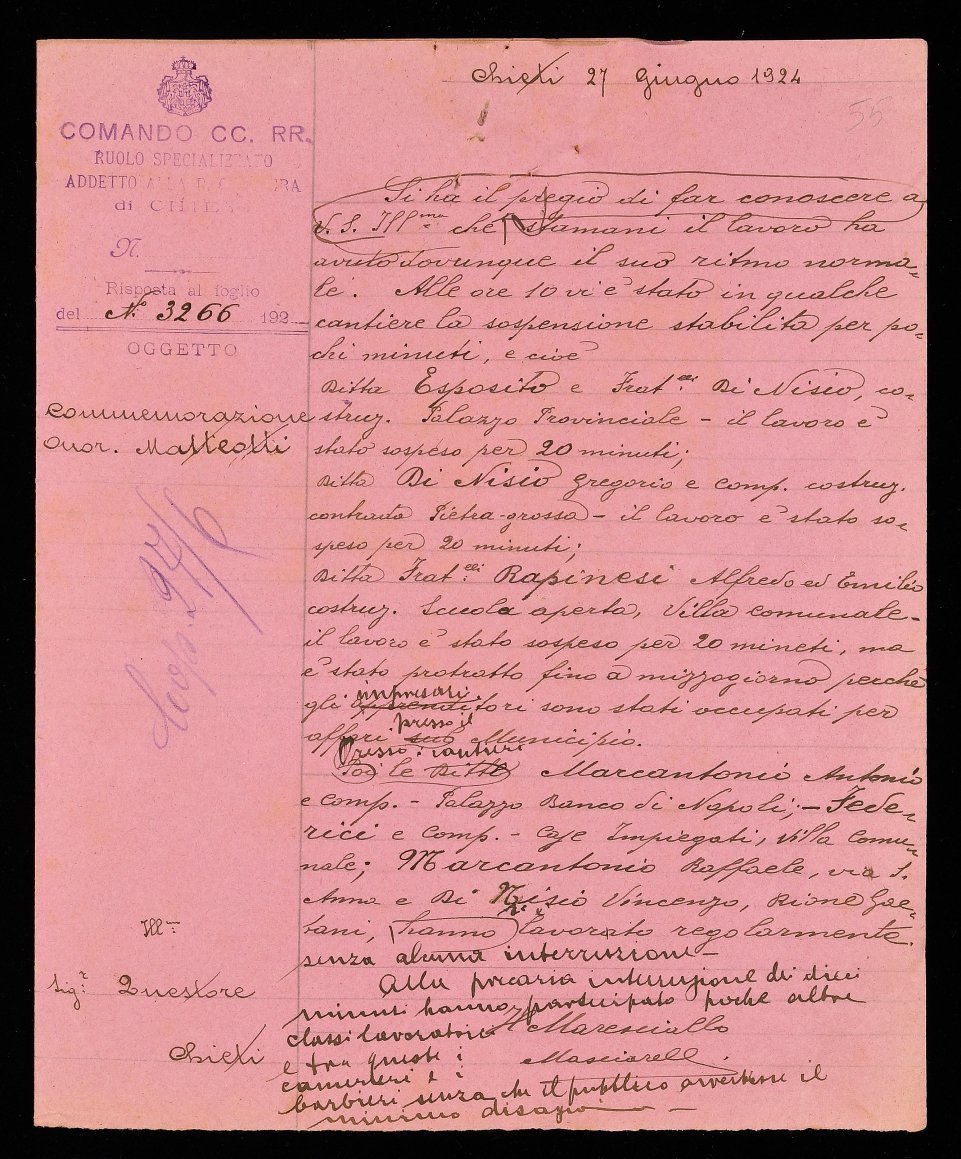 Chieti 27 Giugno 1924
55
COMANDO CC. RR.
RUOLO SPECIALIZZATO
ADDETTO ALLA
di CHIETI
N.
Risposta al foglio
del N. 3266 192
OGGETTO
Commemorazione
Onor. Matteotti
27/6
Ill.mo
Sig.r Questore
Chieti
Si ha il pregio di far conoscere a
V. S. Ill.ma che stamani il lavoro ha
avuto dovunque il suo ritmo norma-
le. Alle ore 10 vi è stato in qualche
cantiere la sospensione stabilita per po-
chi minuti, e cioè
Ditta Esposito e Frat.elli Di Nisio, co-
struz. Palazzo Provinciale - il lavoro è
stato sospeso per 20 minuti;
Ditta Di Nisio Gregorio e Comp. costruz.
contrada Pietra-grossa - il lavoro è stato so-
speso per 20 minuti;
Ditta Frat.elli Rapinesi Alfredo ed Emilio
costruz. Scuola aperta, Villa comunale -
il lavoro è stato sospeso per 20 mineti, ma
è stato protratto fino a mizzogiorno perchè
impresari
gli apprenditori sono stati occupati per
presso il
affari suo Municipio.
Presso i cantieri
Poi le Ditte Marcantonio Antonio
e Comp. - Palazzo Banco di Napoli; - Fede-
rici e Comp. - Case Impiegati, Villa Comu-
nale; Marcantonio Raffaele, via S.
Anna e Di Nisio Vincenzo, Rione Gae-
tani, hanno lavorato regolarmente.
senza alcuna interruzione -
Alla precaria interruzione dei dieci
minuti hanno partecipato poche altre
classi lavoratrici
Il Maresciallo
e tra queste i
Masciarelli
camerieri e i
barbieri senza che il pubblico avvertisse il
minimo disagio -